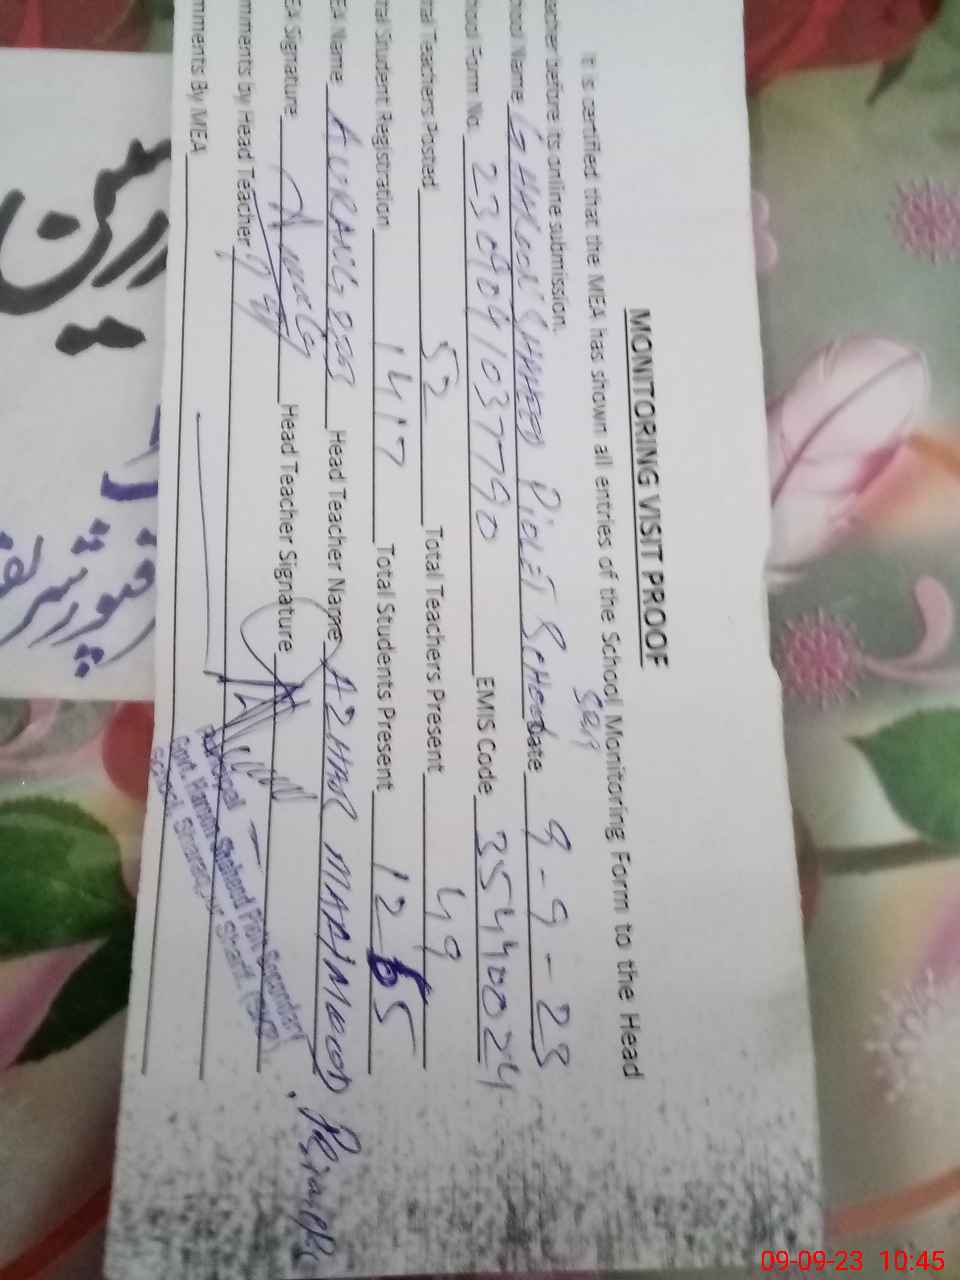 MONITORING VISIT PROOF
It is certified that the MEA has shown all entries of the School Monitoring Form to the Head
eacher before its online submission.
ool Name G HAROON SHAHEED PIOLET SCHool date 9-9-23
hool Form No. 2309041037790 EMIS Code 35440024
tal Teachers Posted 52 Total Teachers Present 49
tal Student Registration 1417 Total Students Present 1265
EA Name AURANGZEB Head Teacher Name AZHAR MAHMOOD
EA Signature Head Teacher Signature
mments by Head Teacher
mments By MEA
Principal
Govt. Haroon Shaheed Pilot Secondary
School, Sharaqpur Sharif
شرقپور شریف
09-09-23 10:45